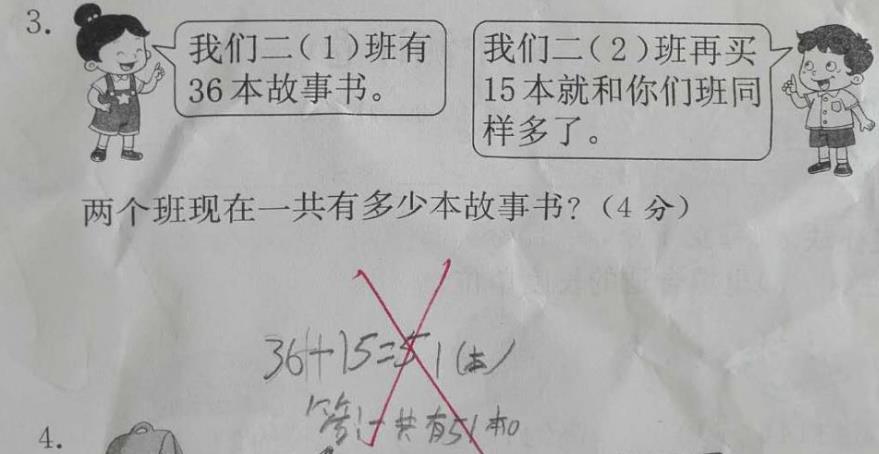 3.
我们二（1）班有
36本故事书。
我们二（2）班再买
15本就和你们班同
样多了。
两个班现在一共有多少本故事书？（4分）
36+15=51(本)
答:一共有51本。
4.